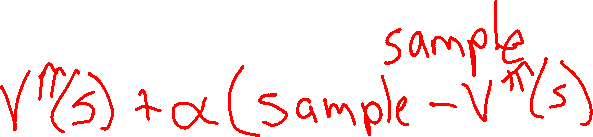 sample
V^π(s) + α(sample - V^π(s)